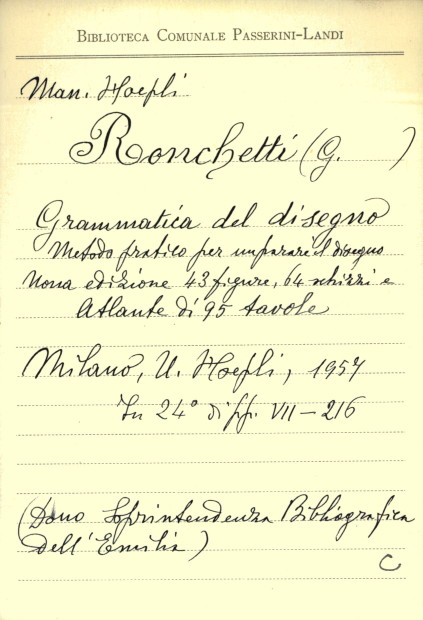 BIBLIOTECA COMUNALE PASSERINI-LANDI
Man. Hoepli
Ronchetti (G. )
Grammatica del disegno
Metodo pratico per imparare il disegno
Nona edizione 43 figure, 64 schizzi e
Atlante di 95 tavole
Milano, U. Hoepli, 1957
In 24° di pp. VII-216
(Dono Soprintendenza Bibliografica
dell'Emilia)
C